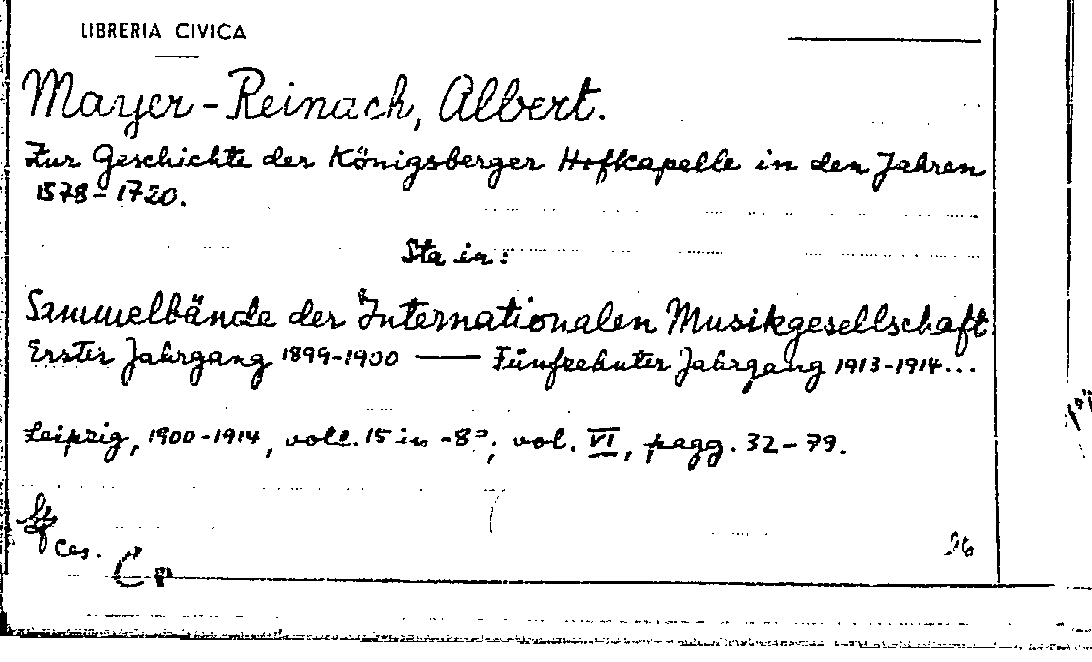 LIBRERIA CIVICA
Mayer-Reinach, Albert.
Zur Geschichte der Königsberger Hofkapelle in den Jahren
1578-1720.
Sta in:
Sammelbände der Internationalen Musikgesellschaft
Erster Jahrgang 1899-1900 — Fünfzehnter Jahrgang 1913-1914...
Leipzig, 1900-1914, voll. 15 in -8°; vol. VI, pagg. 32-79.
Ces.